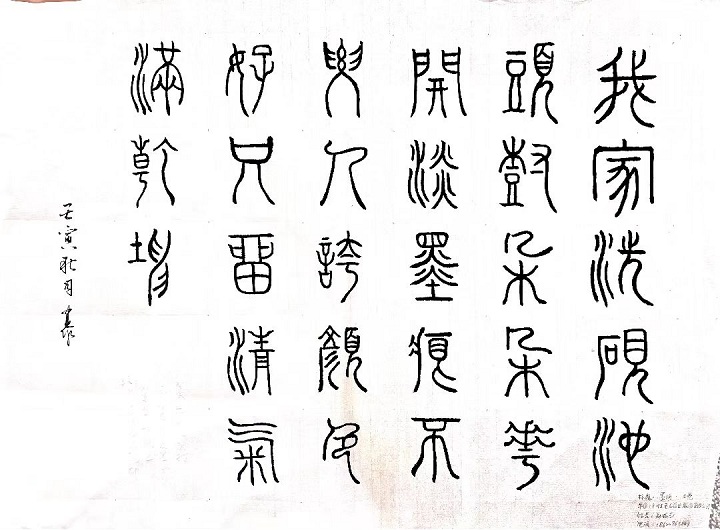 我家洗硯池
頭樹朵朵花
開淡墨痕不
要人誇顏色
好只留清氣
滿乾坤
壬寅秋月